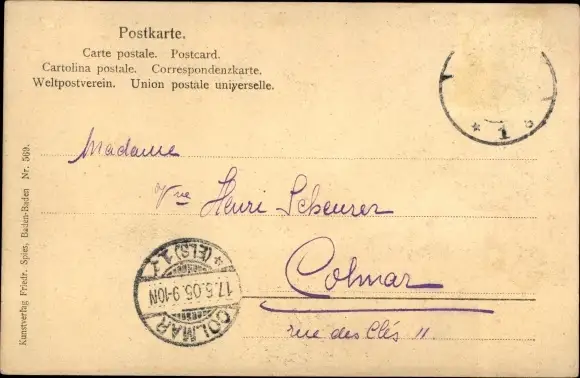 Postkarte.
Carte postale. Postcard.
Cartolina postale. Correspondenzkarte.
Weltpostverein. Union postale universelle.
* 1
Madame
Vve Henri Scheurer
Colmar
rue des Clés 11.
* (ELS) 1
17.5.05.9-10N
COLMAR
Kunstverlag Friedr. Spies, Baden-Baden Nr. 569.